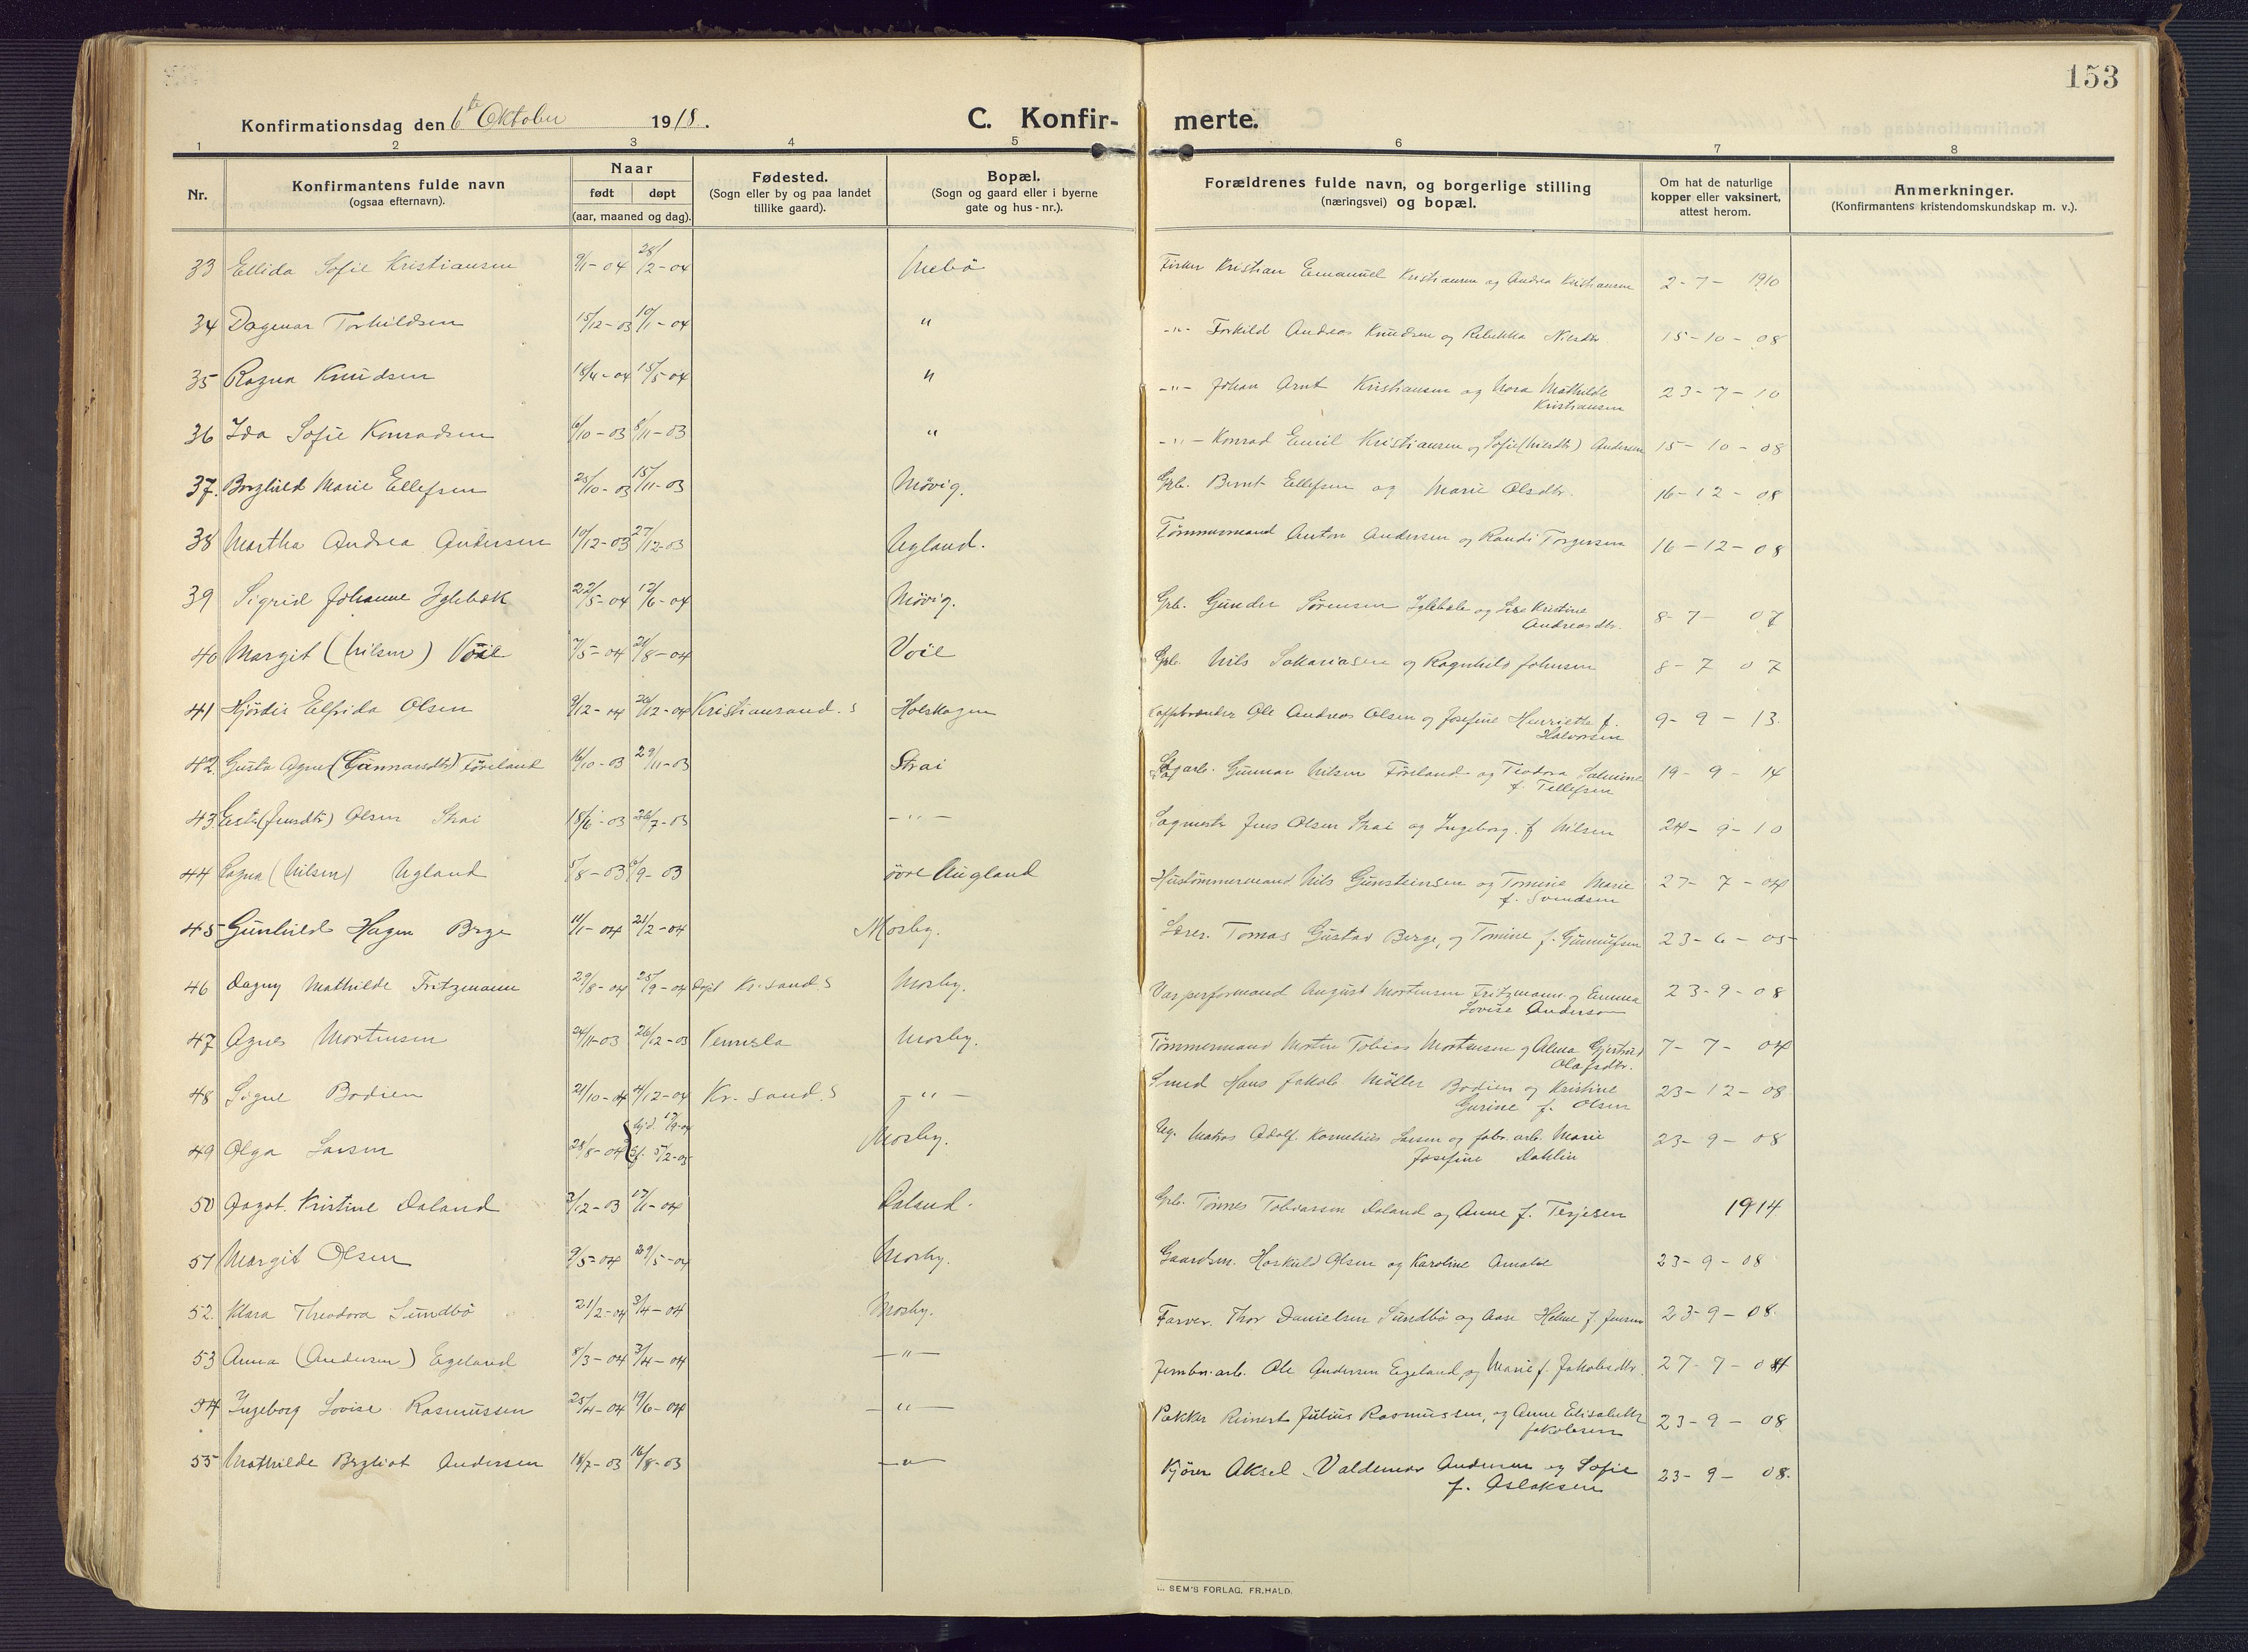 153
Konfirmationsdag den 6te Oktober 1918.
C. Konfir- merte.
1 2 3 4 5 6 7 8
Nr. Konfirmantens fulde navn (ogsaa efternavn). Naar født døpt (aar, maaned og dag). Fødested. (Sogn eller by og paa landet tillike gaard). Bopæl. (Sogn og gaard eller i byerne gate og hus-nr.). Forældrenes fulde navn, og borgerlige stilling (næringsvei) og bopæl. Om hat de naturlige kopper eller vaksinert, attest herom. Anmerkninger. (Konfirmantens kristendomskundskap m. v.).
33 Ellida Sofie Kristiansen 9/1-04 28/2-04 Nebø Fisker Kristian Emanuel Kristiansen og Andrea Kristiansen 2-7-1910
34 Dagmar Torkildsen 15/12-03 10/1-04 " -"- Torkild Andreas Knudsen og Rebekka Nilsdtr. 15-10-08
35 Ragna Knudsen 18/4-04 15/5-04 " -"- Johan Arnt Kristiansen og Nora Mathilde
Kristiansen 23-7-10
36 Ida Sofie Konradsen 6/10-03 8/11-03 " -"- Konrad Emil Kristiansen og Sofie (Nilsdtr) Andersen 15-10-08
37. Borghild Marie Ellefsen 25/10-03 15/11-03 Møvig. Grb. Bernt Ellefsen og Marie Olsdtr. 16-12-08
38 Martha Andrea Andersen 10/12-03 27/12-03 Ugland. Tømmermand Anton Andersen og Randi Torgersen 16-12-08
39 Sigrid Johanne Iglebæk 22/5-04 12/6-04 Møvig. Grb. Gunder Sørensen Iglebæk og Lise Kristine
Andreasdtr. 8-7-07
40 Margit (Nilsen) Voie 7/5-04 21/8-04 Voie Grb. Nils Sakariasen og Ragnhild Johnsen 8-7 07
41 Hjørdis Elfrida Olsen 9/12-04 26/12-04 Kristiansand. S Holskogen Ole Andreas Olsen og Josefine Henriette f.
Halvorsen 9-9-13.
42. Gusta Agnes (Gunnarsdtr) Føreland 16/10-03 29/11-03 Strai Gunnar Nilsen Føreland og Teodora Salmine
f. Tellefsen 19-9-14
43 Ester (Jensdtr) Olsen Strai 18/6-03 26/7-03 -"- Sagmestr Jens Olsen Strai og Ingeborg. f Nilsen 24-9-10
44 Ragna (Nilsen) Ugland 5/8-03 6/9-03 øvre Augland Hustømmermand Nils Gunsteinsen og Tomine Marie
f. Svendsen 27-7-04
45 Gunhild Hagen Berge 11/1-04 21/2-04 Mosby. Lærer. Tomas Gustav Berge, og Tomine f. Gunnufsen 23-6-05
46 Dagny Mathilde Fritzmann 29/8-04 25/9-04 Kr. sand. S Mosby. August Mortensen Fritzmann og Emma
Lovise Anderson 23-9-08
47 Agnes Mortensen 24/11-03 26/12-03 Vennesla Mosby. Tømmermand Morten Tobias Mortensen og Alma Gjertrud
Olafsdtr. 7-7-04
48 Signe Bodien 21/10-04 4/12-04 Kr. sand. S -"- Smed Hans Jakob Møller Bodien og Kristine
Gurine f. Olsen 23-12-08
49 Olga Larsen 28/8-04 hjd. 17/9-04
5/2-05 Mosby. Ug. Matros Adolf Kornelius Larsen og fabr. arb. Marie
Josefine Dahlin 23-9-08
50 Aagot. Kristine Daland 3/12-03 17/1-04 Daland. Grb. Tønnes Tobiassen Daland og Anne f. Terjesen 1914
51 Margit Olsen 9/5-04 29/5-04 Mosby. Gaardsm. Høskuld Olsen og Karoline Amalie 23-9-08
52. Klara Theodora Sundbø 21/2-04 3/4-04 Mosby. Farver. Thor Danielsen Sundbø og Aase Helene f. Jensen 23-9-08.
53 Anna (Andersen) Egeland 8/3-04 3/4-04 -"- Jernbn. arb. Ole Andersen Egeland og Marie f. Jakobsdtr. 27-7-04
54 Ingeborg Lovise Rasmussen 25/4-04 19/6-04 -"- Pakker Reinert Julius Rasmussen, og Anne Elisabeth
Jakobsen 23-9-08
55 Mathilde Bergliot Andersen 18/7-03 16/8-03 -"- Kjører Aksel Valdemar Andersen og Sofie
f. Aslaksen 23-9-08.
SEM'S FORLAG, FR.HALD.